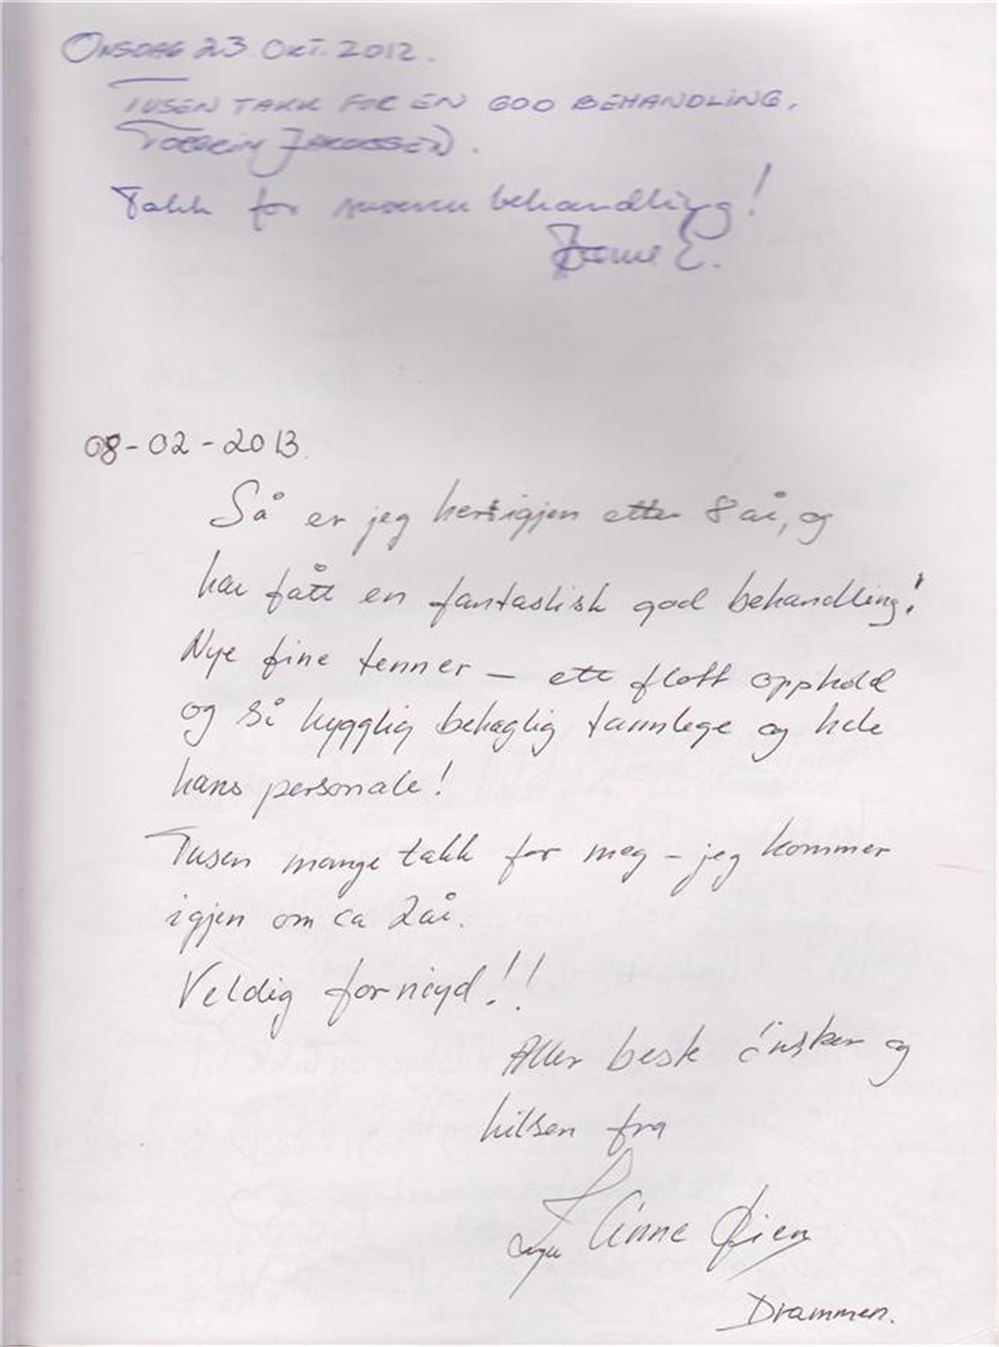 ONSDAG 23 OKT. 2012.
TUSEN TAKK FOR EN GOD BEHANDLING.
JAKOBSEN.
Takk for behandling!
E.
08-02-2013.
Så er jeg her igjen etter 8 år, og
har fått en fantastisk god behandling!
Nye fine tenner – ett flott opphold
og så hygglig behaglig tannlege og hele
hans personale!
Tusen mange takk for meg – jeg kommer
igjen om ca 2 år.
Veldig fornøyd!!
Aller beste ønsker og
hilsen fra
Anne Øien
Drammen.